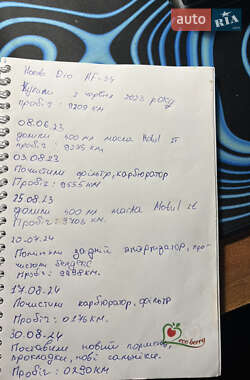 auto RIA.com
Honda Dio AF-35
Купили 2 червня 2023 року
пробіг: 9209 км
08.06.23
долили 500 мл масла Mobil 2T
пробіг: 9275 км
03.08.23
Почистили фільтр, карбюратор
Пробіг: 9555 км
25.08.23
долили 500 мл масла Mobil 2t
Пробіг: 9706 км
Поміняли задній амортизатор,
Пробіг: 9998 км.
17.08.24
Почистили карбюратор, фільтр
Пробіг: 0176 км.
30.08.24
eco berry
Поставили новий
прокладки, нові сальники.
Пробіг: 0290 км